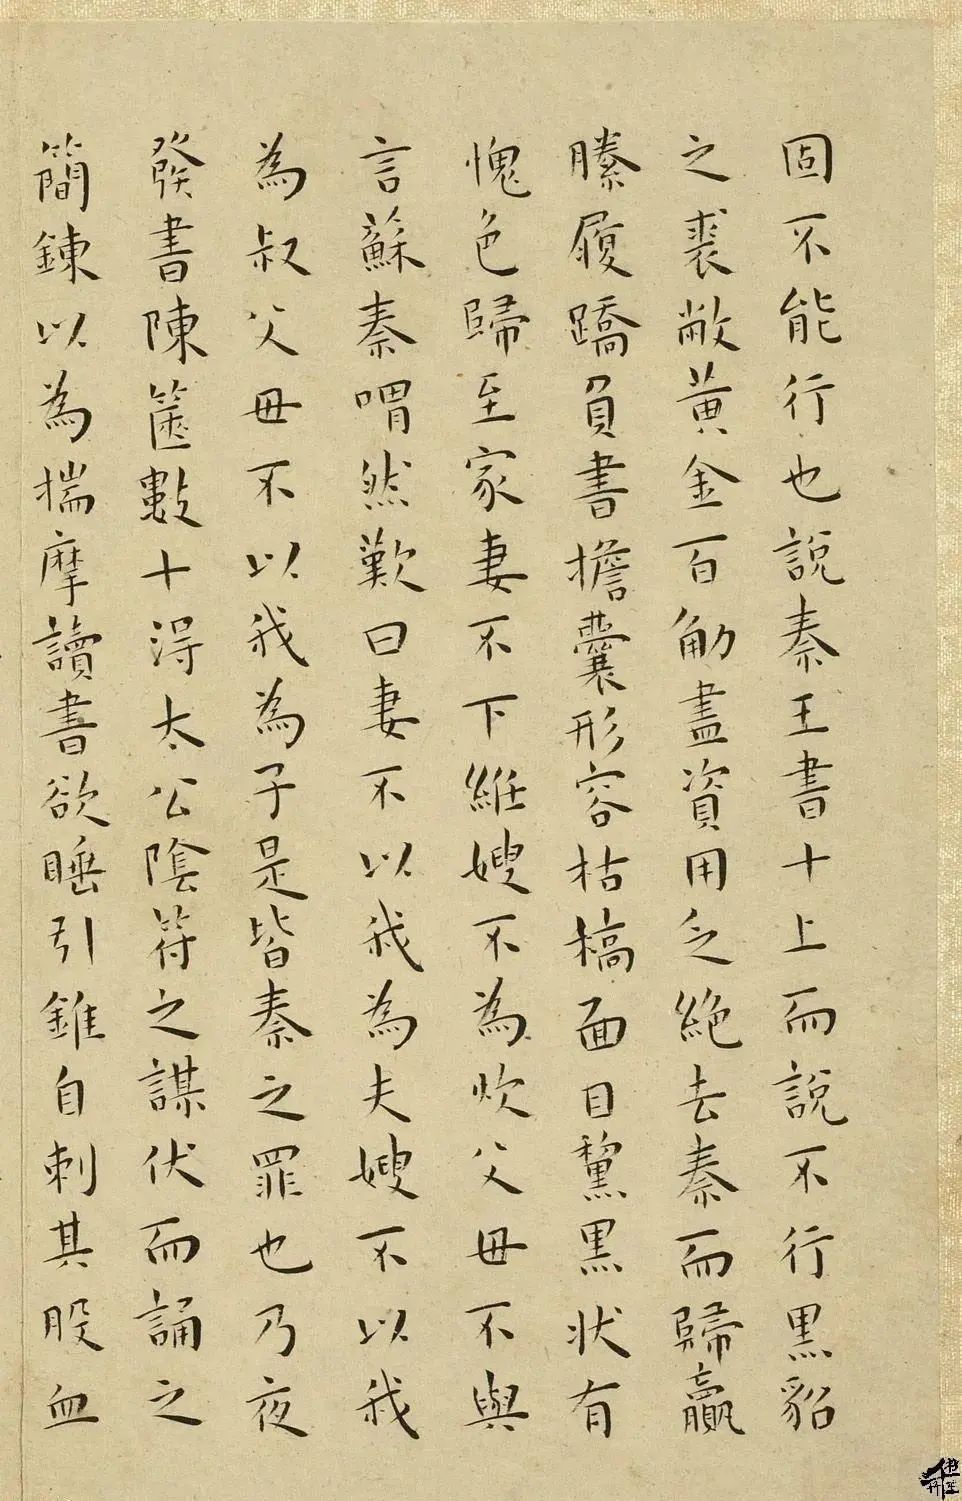 固不能行也說秦王書十上而說不行黑貂
之裘敝黃金百觔盡資用乏絶去秦而歸羸
縢履蹻負書擔囊形容枯槁面目黧黑狀有
愧色歸至家妻不下絍嫂不為炊父母不與
言蘇秦喟然歎曰妻不以我為夫嫂不以我
為叔父母不以我為子是皆秦之罪也乃夜
發書陳篋數十得太公陰符之謀伏而誦之
簡鍊以為揣摩讀書欲睡引錐自刺其股血